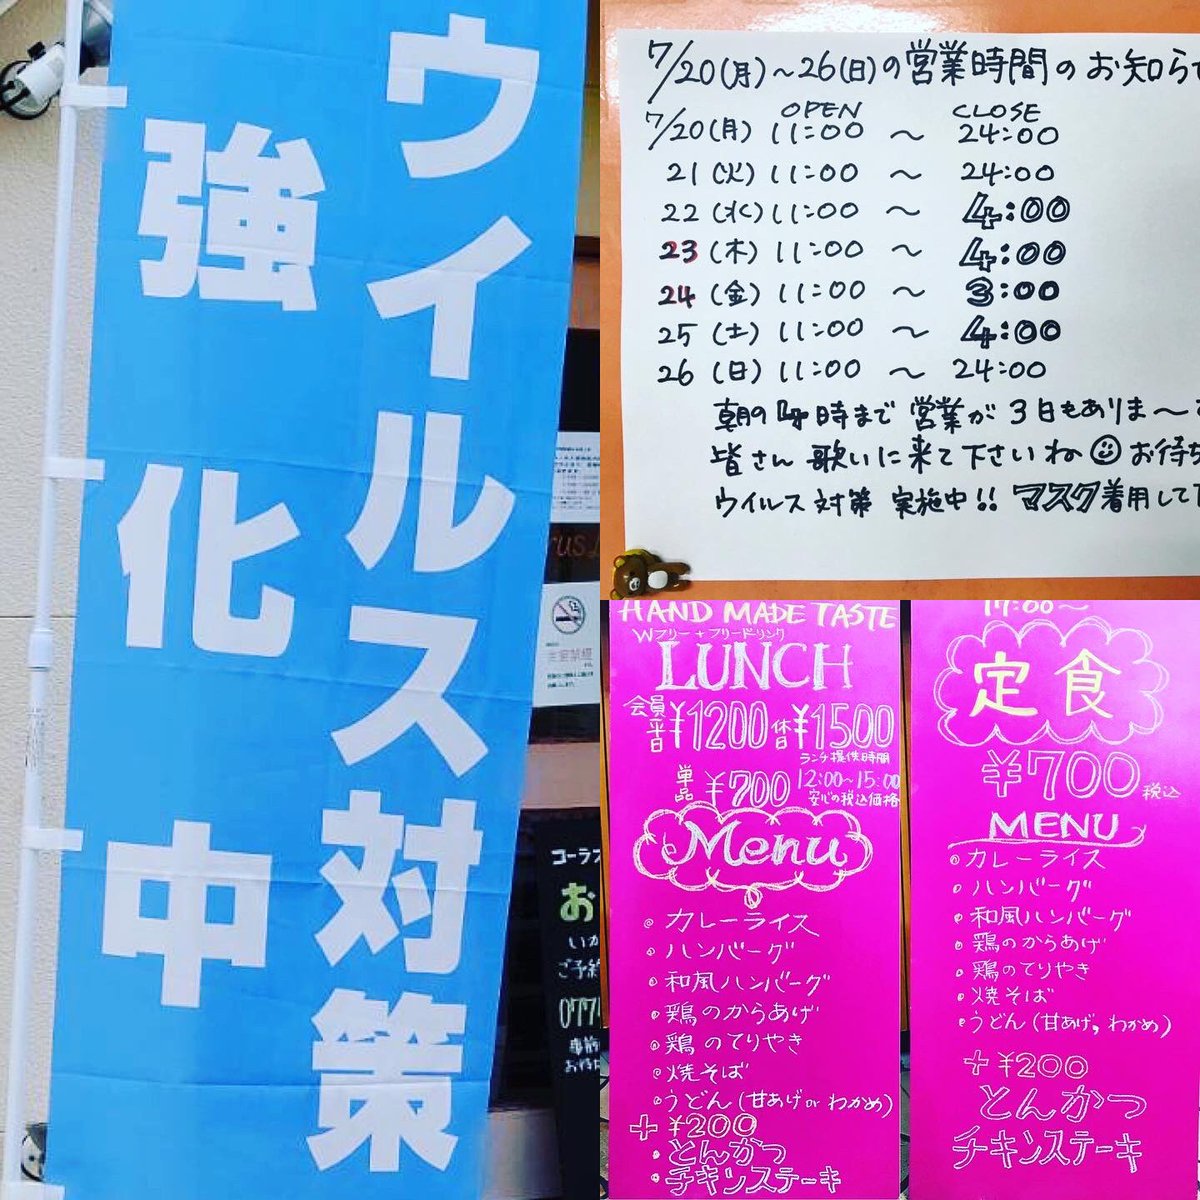 ウイルス対策
強化中
コーラス
お
いか
ご予約
077
7/20(月)~26(日)の営業時間のお知ら
OPEN CLOSE
7/20(月) 11:00 ~ 24:00
21(火) 11:00 ~ 24:00
22(水) 11:00 ~ 4:00
23(木) 11:00 ~ 4:00
24(金) 11:00 ~ 3:00
25(土) 11:00 ~ 4:00
26(日) 11:00 ~ 24:00
朝の4時まで営業が3日もありま~
皆さん歌いに来て下さいね お待ち
ウイルス対策 実施中!! マスク着用して下
HAND MADE TASTE
Wフリー+フリードリンク
LUNCH
会員
平日¥1200 休日¥1500
ランチ提供時間
単品¥700 12:00~15:00
安心の税込価格
Menu
・カレーライス
・ハンバーグ
・和風ハンバーグ
・鶏のからあげ
・鶏のてりやき
・焼そば
・うどん(甘あげorわかめ)
+¥200
・とんかつ
・チキンステーキ
17:00~
定食
¥700税込
MENU
・カレーライス
・ハンバーグ
・和風ハンバーグ
・鶏のからあげ
・鶏のてりやき
・焼そば
・うどん(甘あげ,わかめ)
+¥200
とんかつ
チキンステーキ